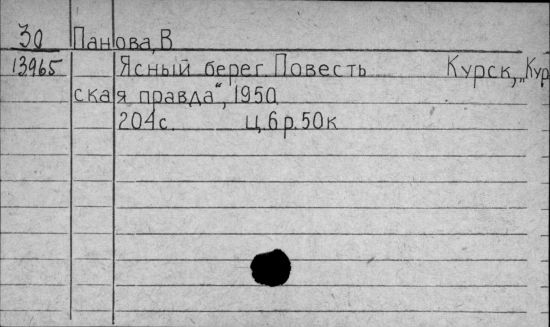 30 Панова, В
13965 Ясный берег. Повесть Курск, „Кур
ская правда“, 1950
204 с. Ц. 6 р. 50 к